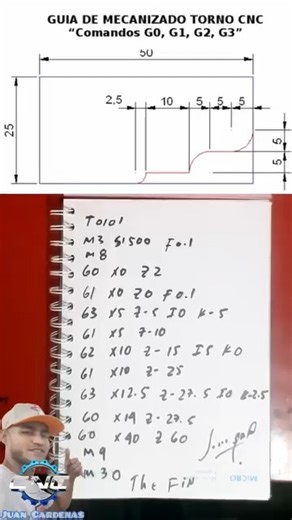 GUIA DE MECANIZADO TORNO CNC
“Comandos G0, G1, G2, G3”
50
2.5 10 5 5 5
25
5
5
T0101
M3 S1500 F0.1
M8
G0 X0 Z2
G1 X0 Z0 F0.1
G3 X5 Z-5 I0 K-5
G1 X5 Z-10
G2 X10 Z-15 I5 K0
G1 X10 Z-25
G3 X12.5 Z-27.5 I0 K-2.5
G0 X19 Z-27.5
G0 X40 Z60
M9
M30
The Fin
MICRO
CNC
JUAN CARDENAS